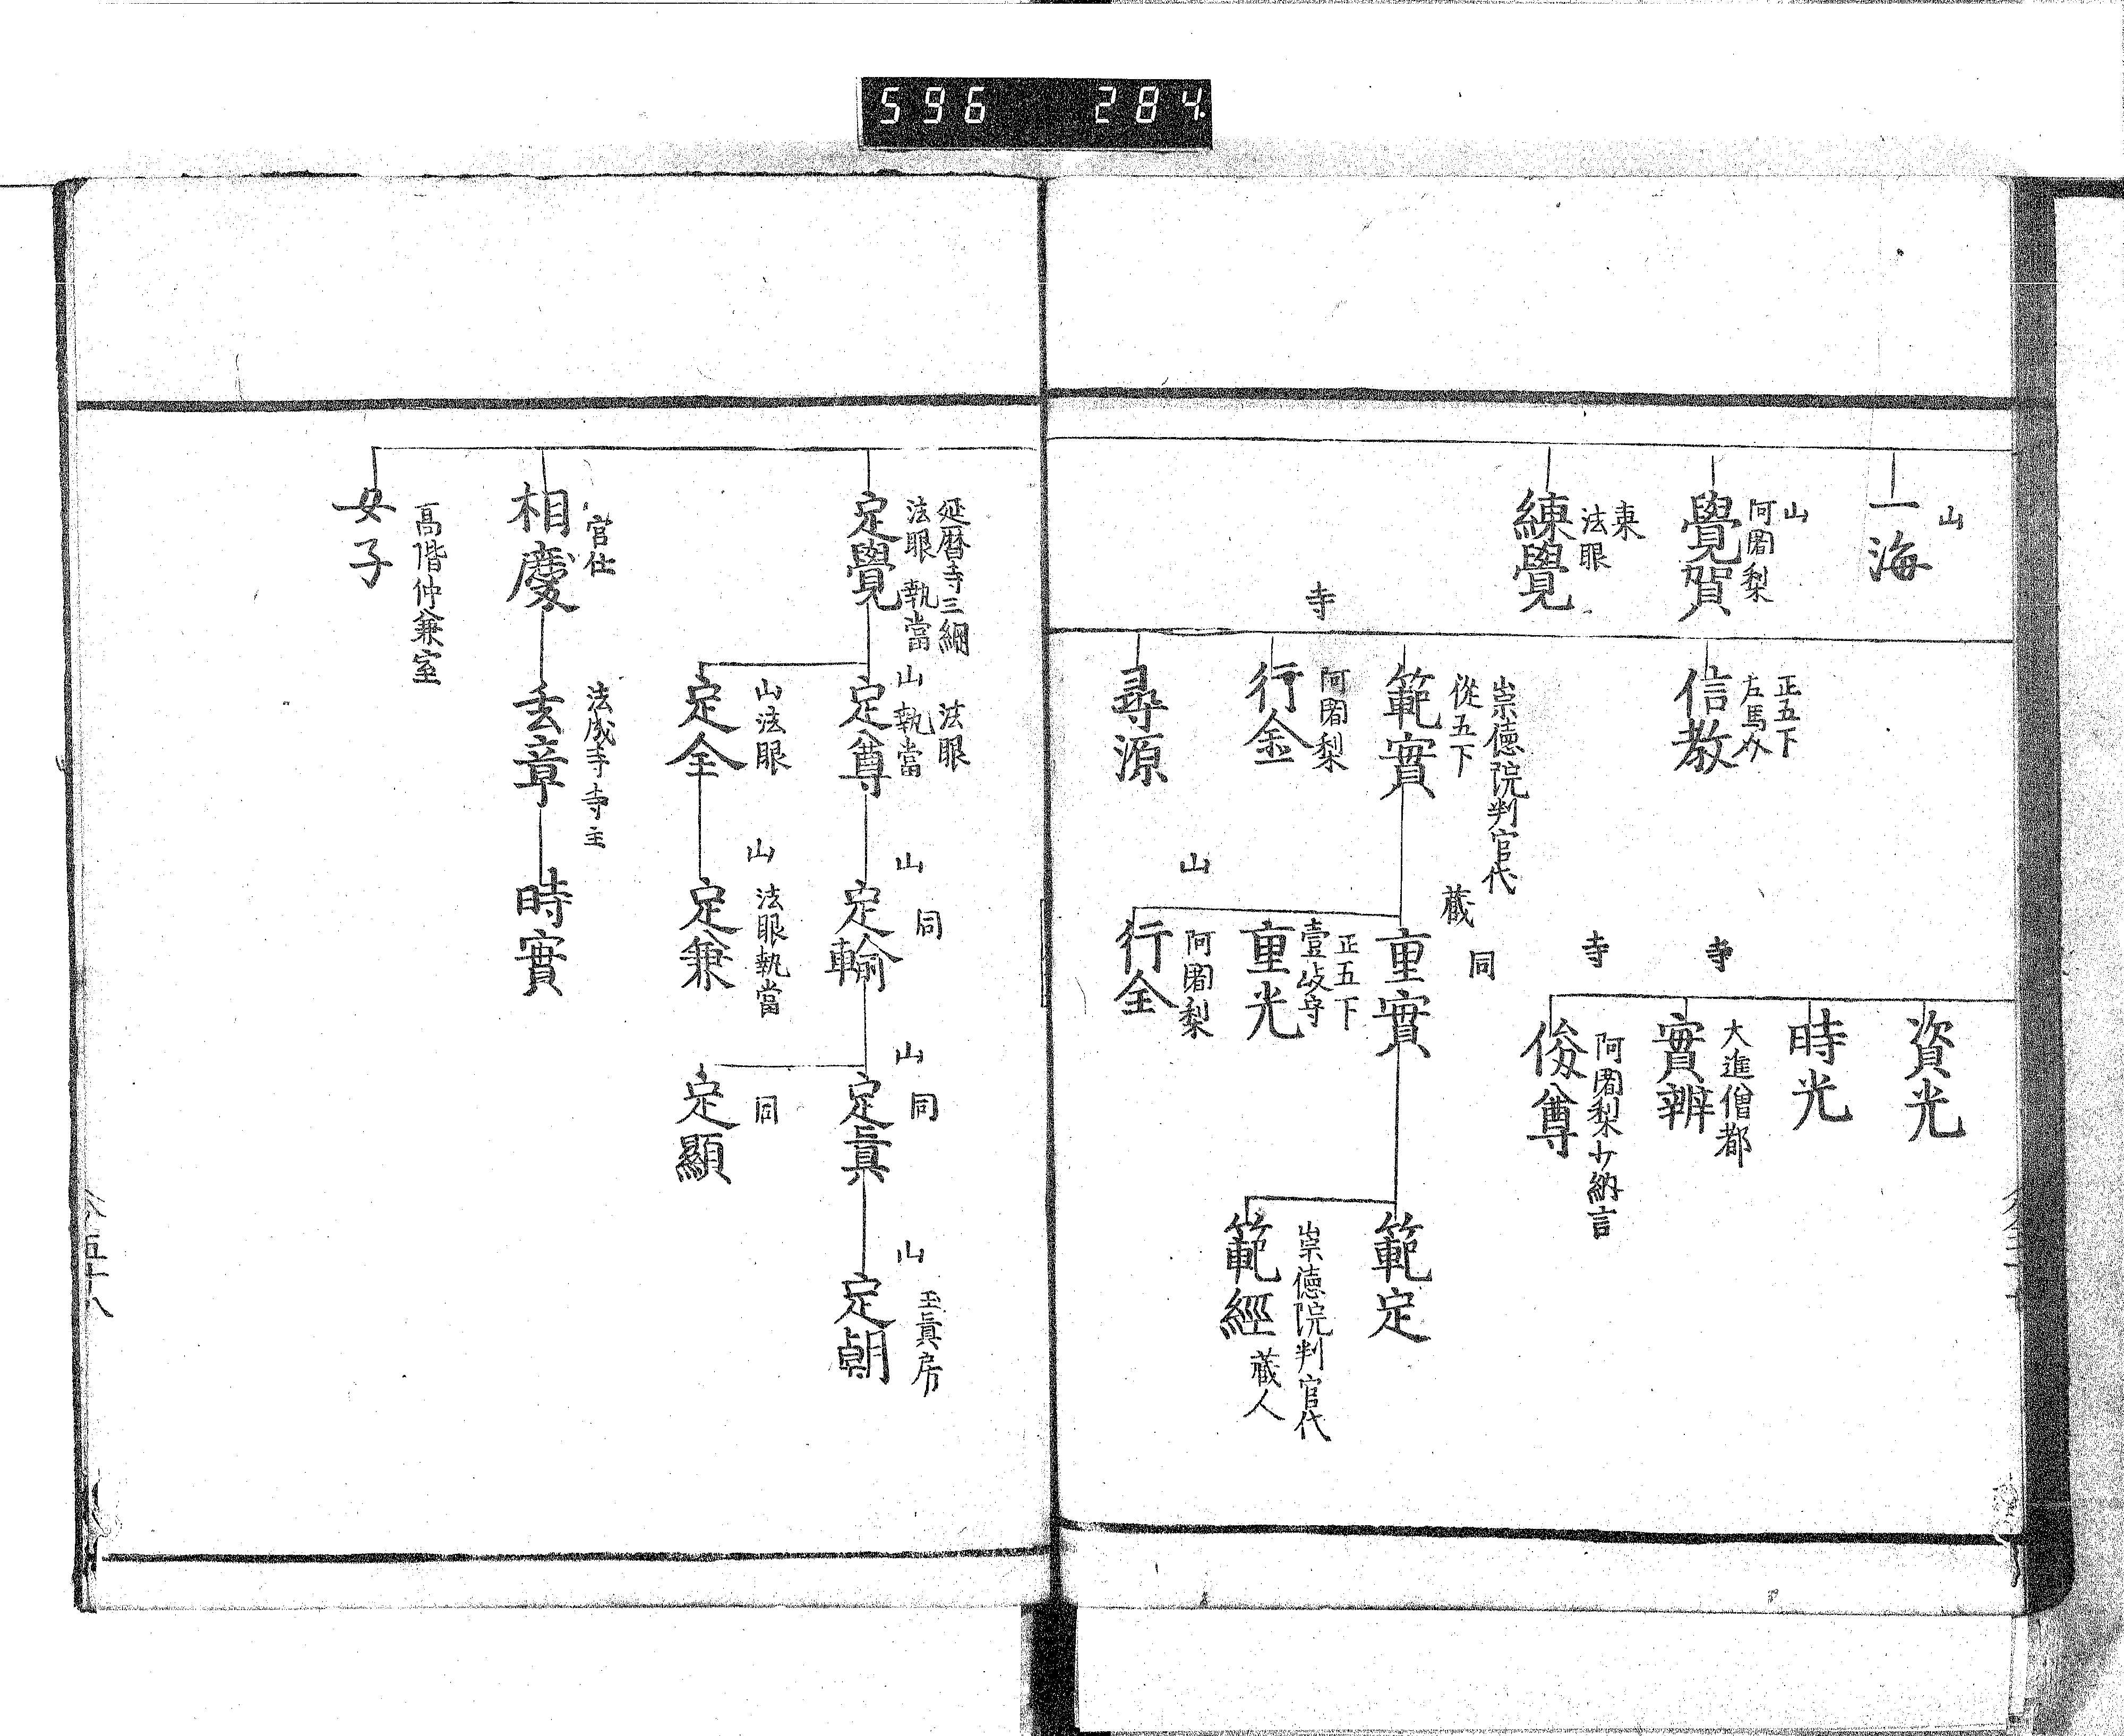 596 284
山
一海
山
阿闍梨
覺賀
東
法眼
練覺
正五下
左馬介
信教
崇德院判官代
從五下
藏
範實
寺
阿闍梨
行金
尋源
資光
時光
寺
大進僧都
實辨
寺
阿闍梨少納言
俊尊
同
重實
正五下
壹岐守
重光
山
阿闍梨
行全
範定
崇德院判官代
藏人
範經
延暦寺三綱
法眼 執當
定覺
法眼
山執當
定尊
山 同
定輸
山 同
定眞
山 玉眞房
定朝
山法眼
定全
山 法眼執當
定兼
同
定顯
官仕
相慶
法成寺寺主
玄章
時實
高階仲兼室
女子
五十八